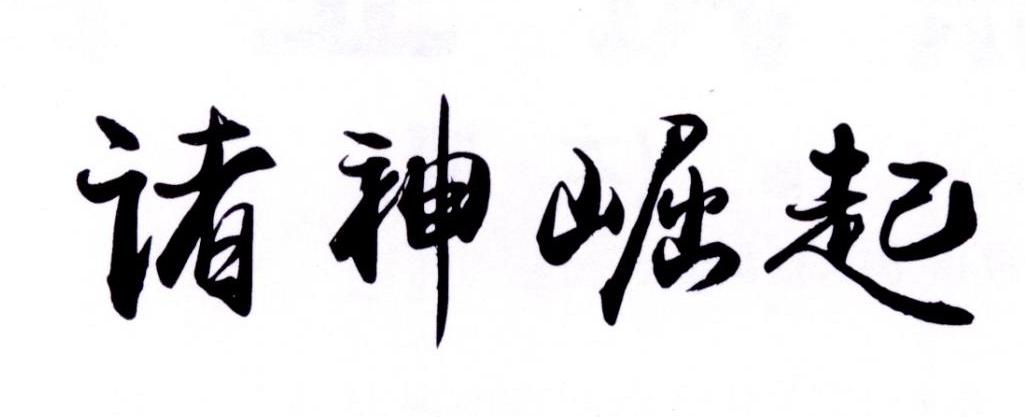 诸神崛起